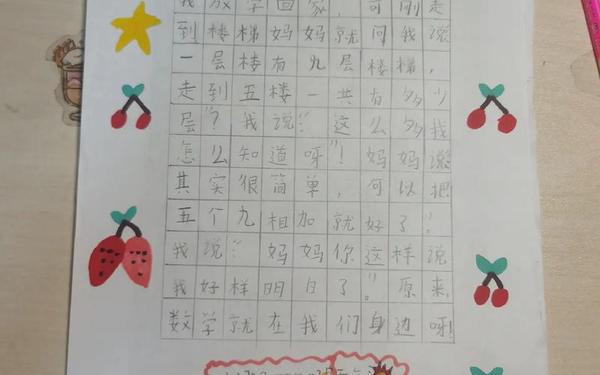 我放学回家，可刚走
到楼梯妈妈就问我说
一层楼有九层楼梯，
走到五楼一共有多少
层"？我说："这么多我
怎么知道呀"！妈妈说：
其实很简单，可以把
五个九相加就好了"。
我说："妈妈你这样说
我好样明白了"。原来，
数学就在我们身边呀！